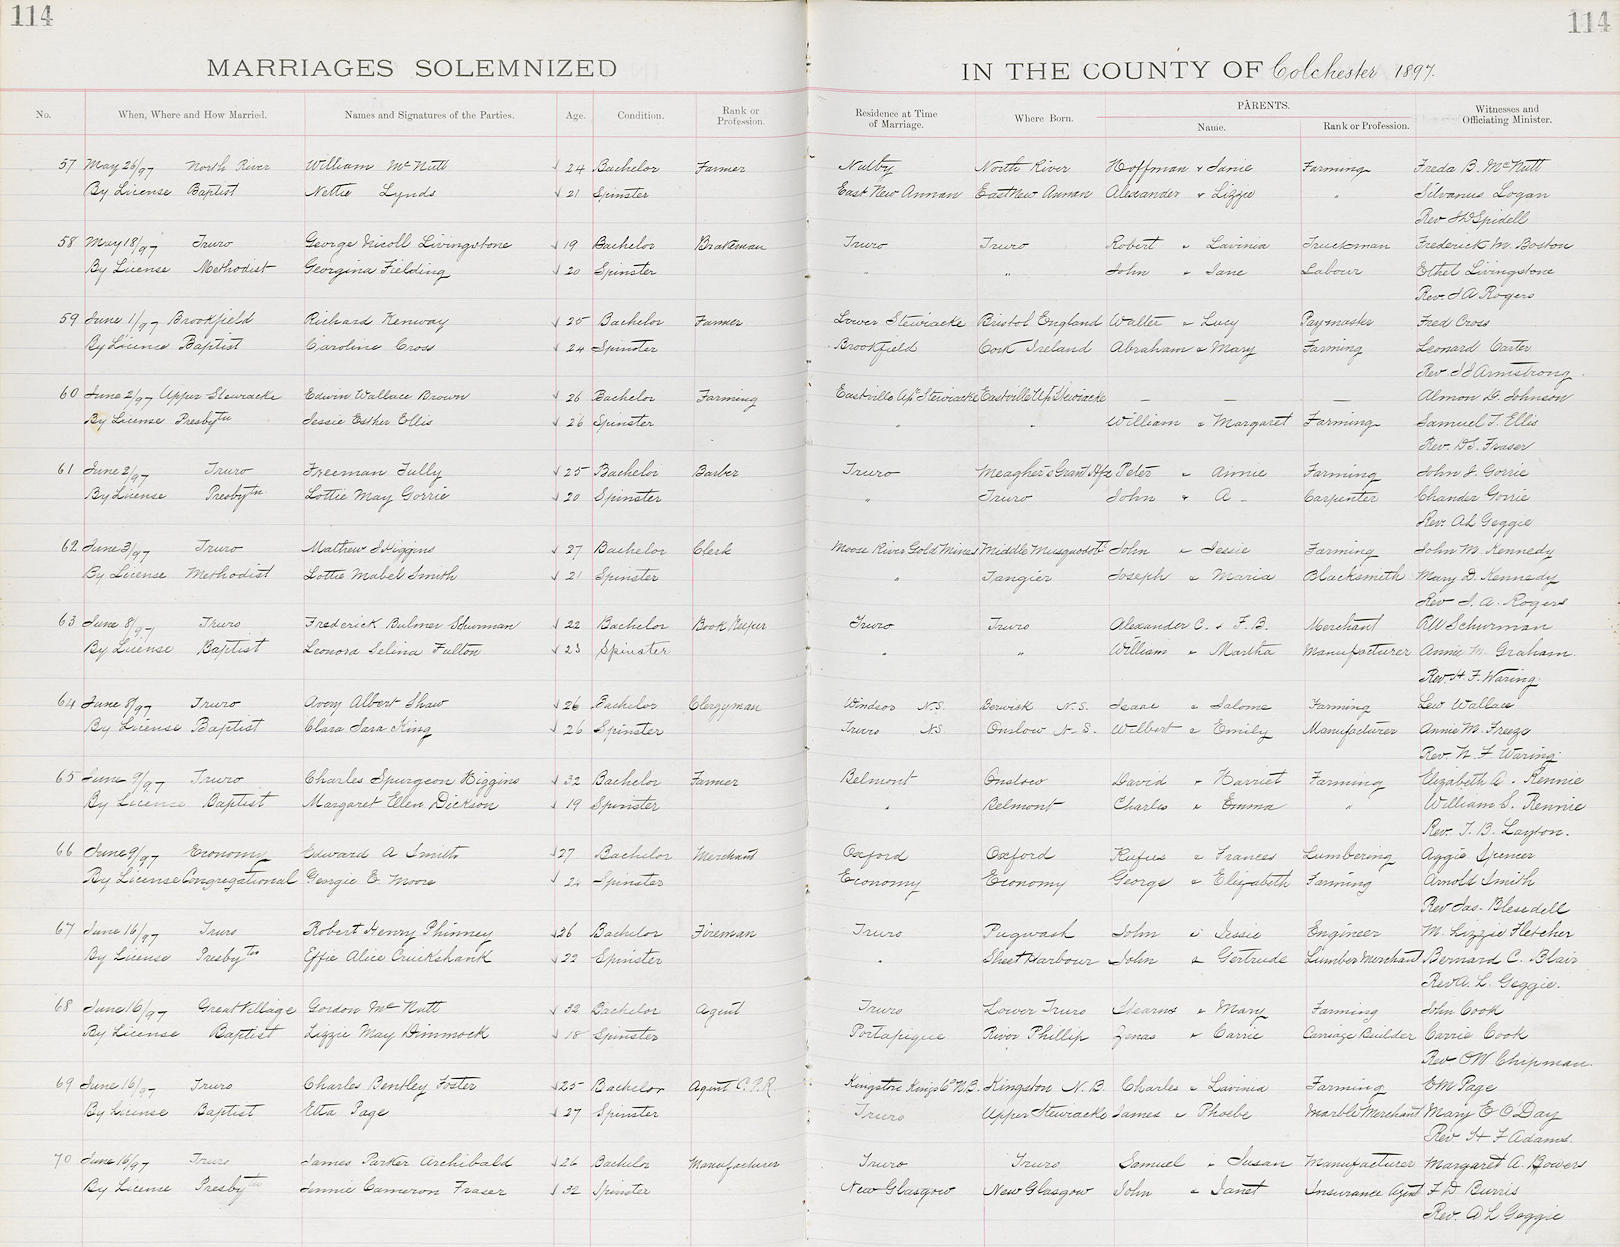 114
114
MARRIAGES SOLEMNIZED
IN THE COUNTY OF Colchester 1897.
No. When, Where and How Married. Names and Signatures of the Parties. Age. Condition. Rank or Profession. Residence at Time of Marriage. Where Born. PARENTS. Name. Rank or Profession. Witnesses and Officiating Minister.
57 May 26/97 North River William McNutt 24 Bachelor Farmer Nutby North River Hoffman & Janie Farming Freda B. McNutt
By License Baptist Nettie Lynds 21 Spinster East New Annan East New Annan Alexander & Lizzie " Silvanus Logan
Rev Spidell
58 May 18/97 Truro George Nicoll Livingstone 19 Bachelor Brakeman Truro Truro Robert & Lavinia Truckman Frederick M. Boston
By License Methodist Georgina Fielding 20 Spinster " " John & Jane Labour Ethel Livingstone
Rev. J A Rogers
59 June 1/97 Brookfield Richard Kenway 25 Bachelor Farmer Lower Stewiacke Bristol England Walter & Lucy Paymaster Fred Cross
By License Baptist Caroline Cross 24 Spinster Brookfield Cork Ireland Abraham & Mary Farming Leonard Carter
Rev Armstrong
60 June 2/97 Upper Stewiacke Edwin Wallace Brown 26 Bachelor Farming Eastville Up Stewiacke Eastville Up Stewiacke — — — Almon G. Johnson
By License Presbytn Jessie Esther Ellis 26 Spinster " " William & Margaret Farming Samuel T. Ellis
Rev. D.S. Fraser
61 June 2/97 Truro Freeman Tully 25 Bachelor Barber Truro Meagher's Grant Hfx Peter & Annie Farming John J. Gorrie
By License Presbytn Lottie May Gorrie 20 Spinster " Truro John & A - Carpenter Chander Gorrie
Rev. A L Geggie
62 June 3/97 Truro Mathew J Higgins 27 Bachelor Clerk Moose River Gold Mines Middle Musquodobt John & Jessie Farming John M. Kennedy
By License Methodist Lottie Mabel Smith 21 Spinster " Tangier Joseph & Maria Blacksmith Mary D. Kennedy
Rev J. A. Rogers
63 June 8/97 Truro Frederick Bulmer Schurman 22 Bachelor Book Keeper Truro Truro Alexander C. & F. B. Merchant RW Schurman
By License Baptist Leonora Selina Fulton 23 Spinster " " William & Martha Manufacturer Annie M. Graham.
Rev. H. F. Waring.
64 June 8/97 Truro Avory Albert Shaw 26 Bachelor Clergyman Windsor N.S. Berwick N.S. Isaac & Salome Farming Lew Wallace
By License Baptist Clara Sara King 26 Spinster Truro N.S Onslow N.S. Wilbert & Emily Manufacturer Annie M. Freeze
Rev. H. F Waring.
65 June 9/97 Truro Charles Spurgeon Higgins 32 Bachelor Farmer Belmont Onslow David & Harriet Farming Elizabeth A. Rennie
By License Baptist Margaret Ellen Dickson 19 Spinster " Belmont Charles & Emma " William S. Rennie
Rev. T. B. Layton.
66 June 9/97 Economy Edward A Smith 27 Bachelor Merchant Oxford Oxford Rufus & Frances Lumbering Aggie Spencer
By License Congregational Georgie E. Moore Spinster Economy Economy George & Elizabeth Farming Arnold Smith
Rev Jas. Blesedell
67 June 16/97 Truro Robert Henry Phinney 26 Bachelor Fireman Truro Pugwash John & Jessie Engineer M. Lizzie Fletcher
By License Presbytn Effie Alice Cruickshank 22 Spinster " Sheet Harbour John & Gertrude Lumber Merchant Bernard C. Blair
Rev A. L. Geggie.
68 June 16/97 Great Village Gordon McNutt 32 Bachelor Agent Truro Lower Truro Stearns & Mary Farming John Cook
By License Baptist Lizzie May Dimmock 18 Spinster Portapique River Phillip Zenas & Carrie Carriage Builder Carrie Cook
Rev OW Chipman.
69 June 16/97 Truro Charles Bentley Foster 25 Bachelor Agent C.P.R. Kingston Kings Co N.B. Kingston N.B. Charles & Lavinia Farming EM Page
By License Baptist Etta Page 27 Spinster Truro Upper Stewiacke James & Phoebe Marble Merchant Mary E O'Day
Rev H F Adams.
70 June 16/97 Truro James Parker Archibald 26 Bachelor Manufacturer Truro Truro Samuel & Susan Manufacturer Margaret A. Bowers
By License Presbytn Jennie Cameron Fraser 32 Spinster New Glasgow New Glasgow John & Janet Insurance Agent F D Burris
Rev. A L Geggie